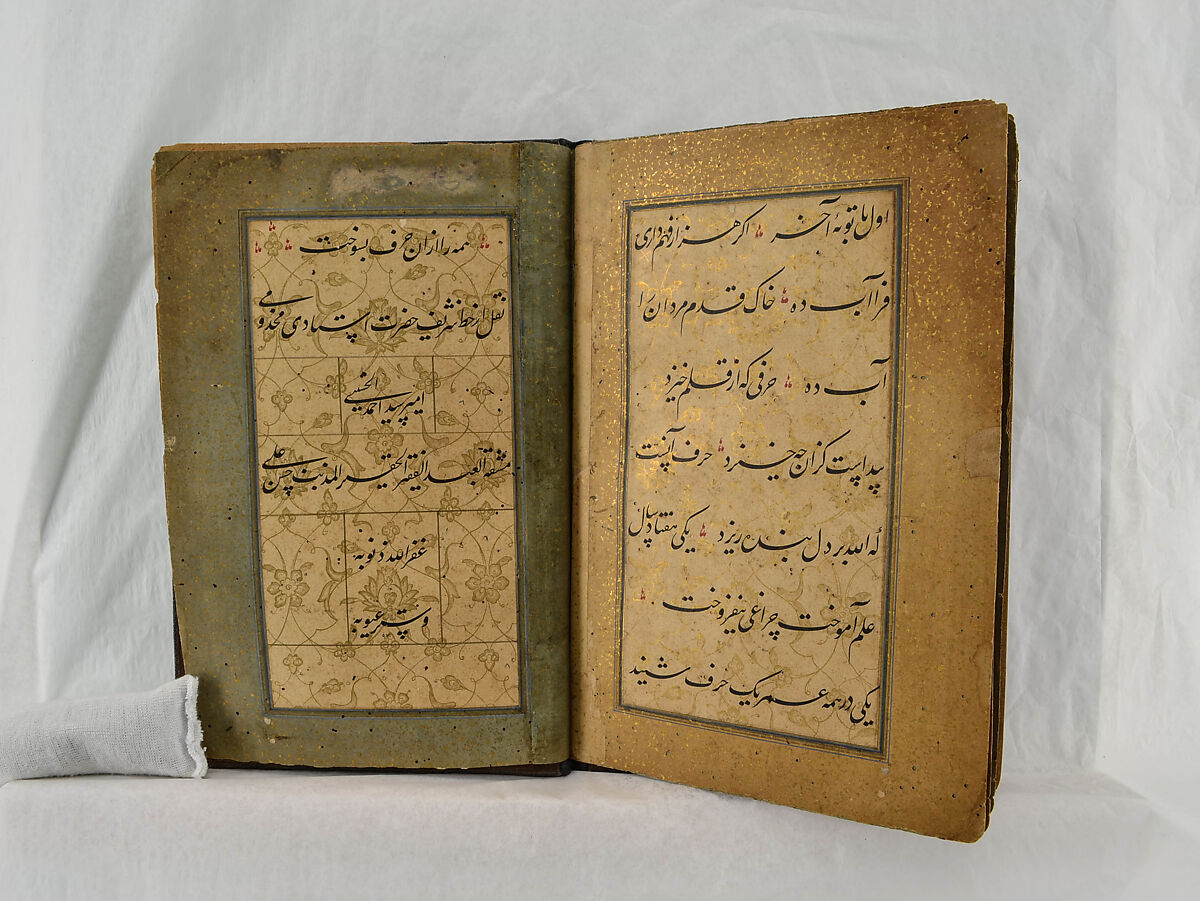 اول با توبهٔ آخر اگر هزار فهم داری
فرا آب ده خاک قدم مردان را
آب ده حرفی که از قلم خیزد
پیداست کزان چه خیزد حرف آنست
که الله بر دل بنده ریزد یکی هفتاد سال
علم آموخت چراغی نیفروخت
یکی در همه عمر یک حرف شنید
همه را ازان حرف بسوخت
نقل از خط شریف حضرت استادی مخدومی
امیر سید احمد الحسینی
مشقه العبد الفقیر الحقیر المذنب حسن علی
غفر الله ذنوبه
وستر عیوبه